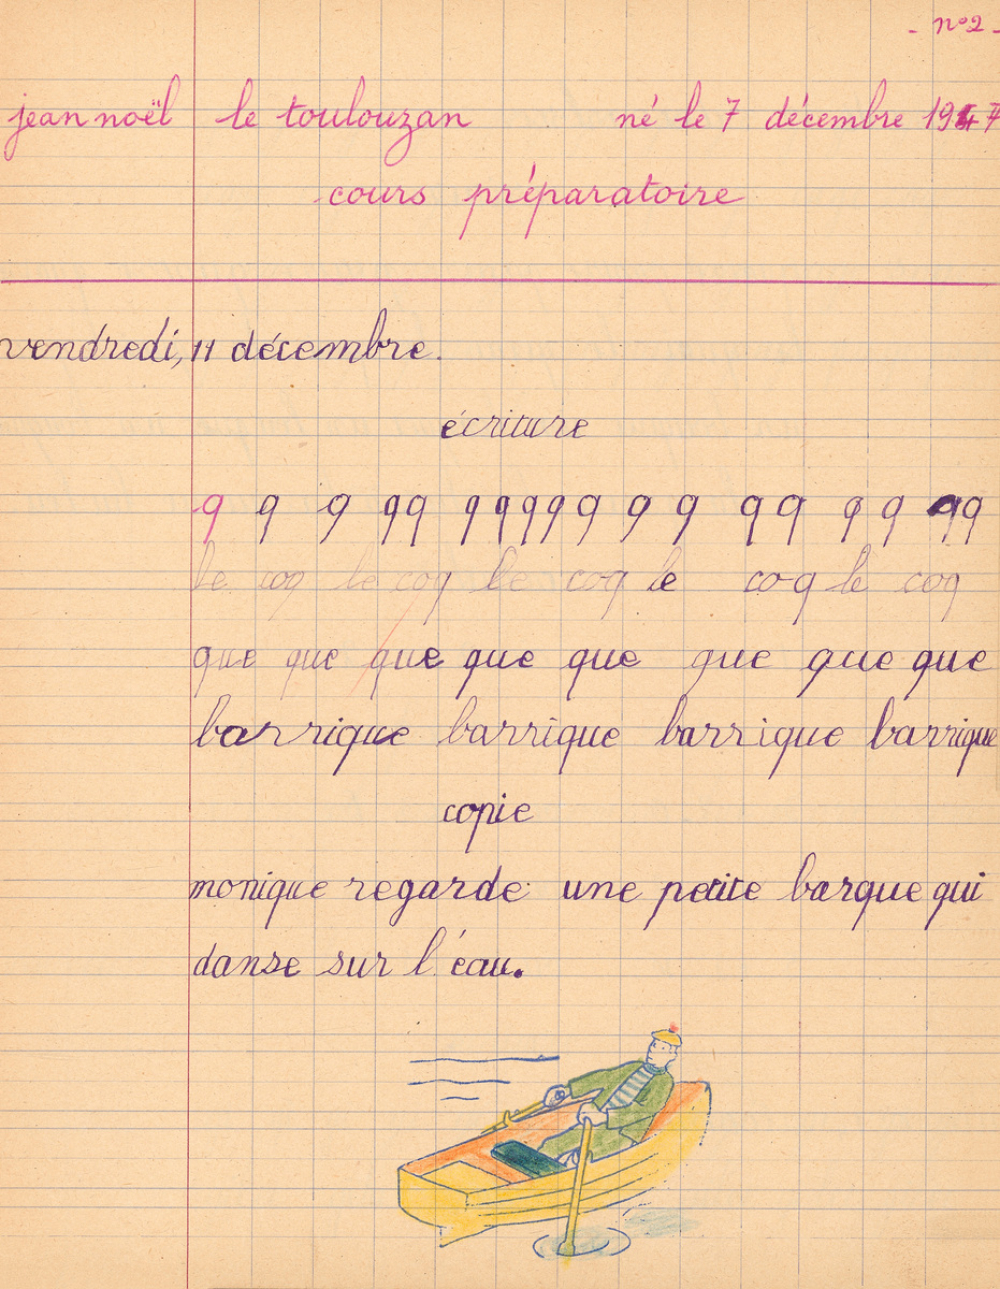 - n°2 -
jean noël le toulouzan né le 7 décembre 1947
cours préparatoire
vendredi, 11 décembre.
écriture
q q q qq qqqqq q q q q q q qq
le coq le coq le coq le coq le coq
que que que que que que que que
barrique barrique barrique barrique
copie
monique regarde une petite barque qui
danse sur l'eau.